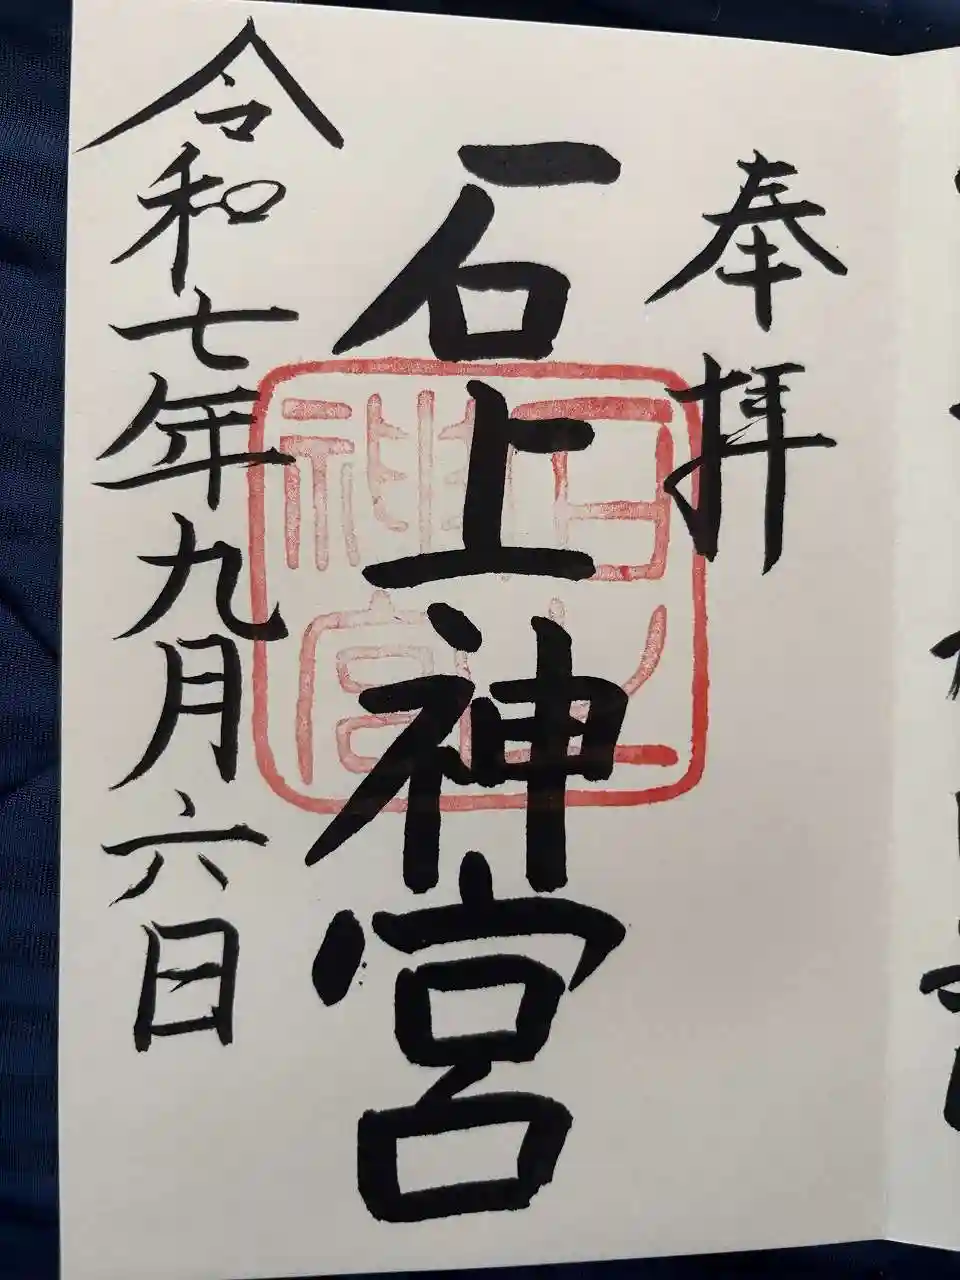 奉拝
石上神宮
石上神宮
令和七年九月六日